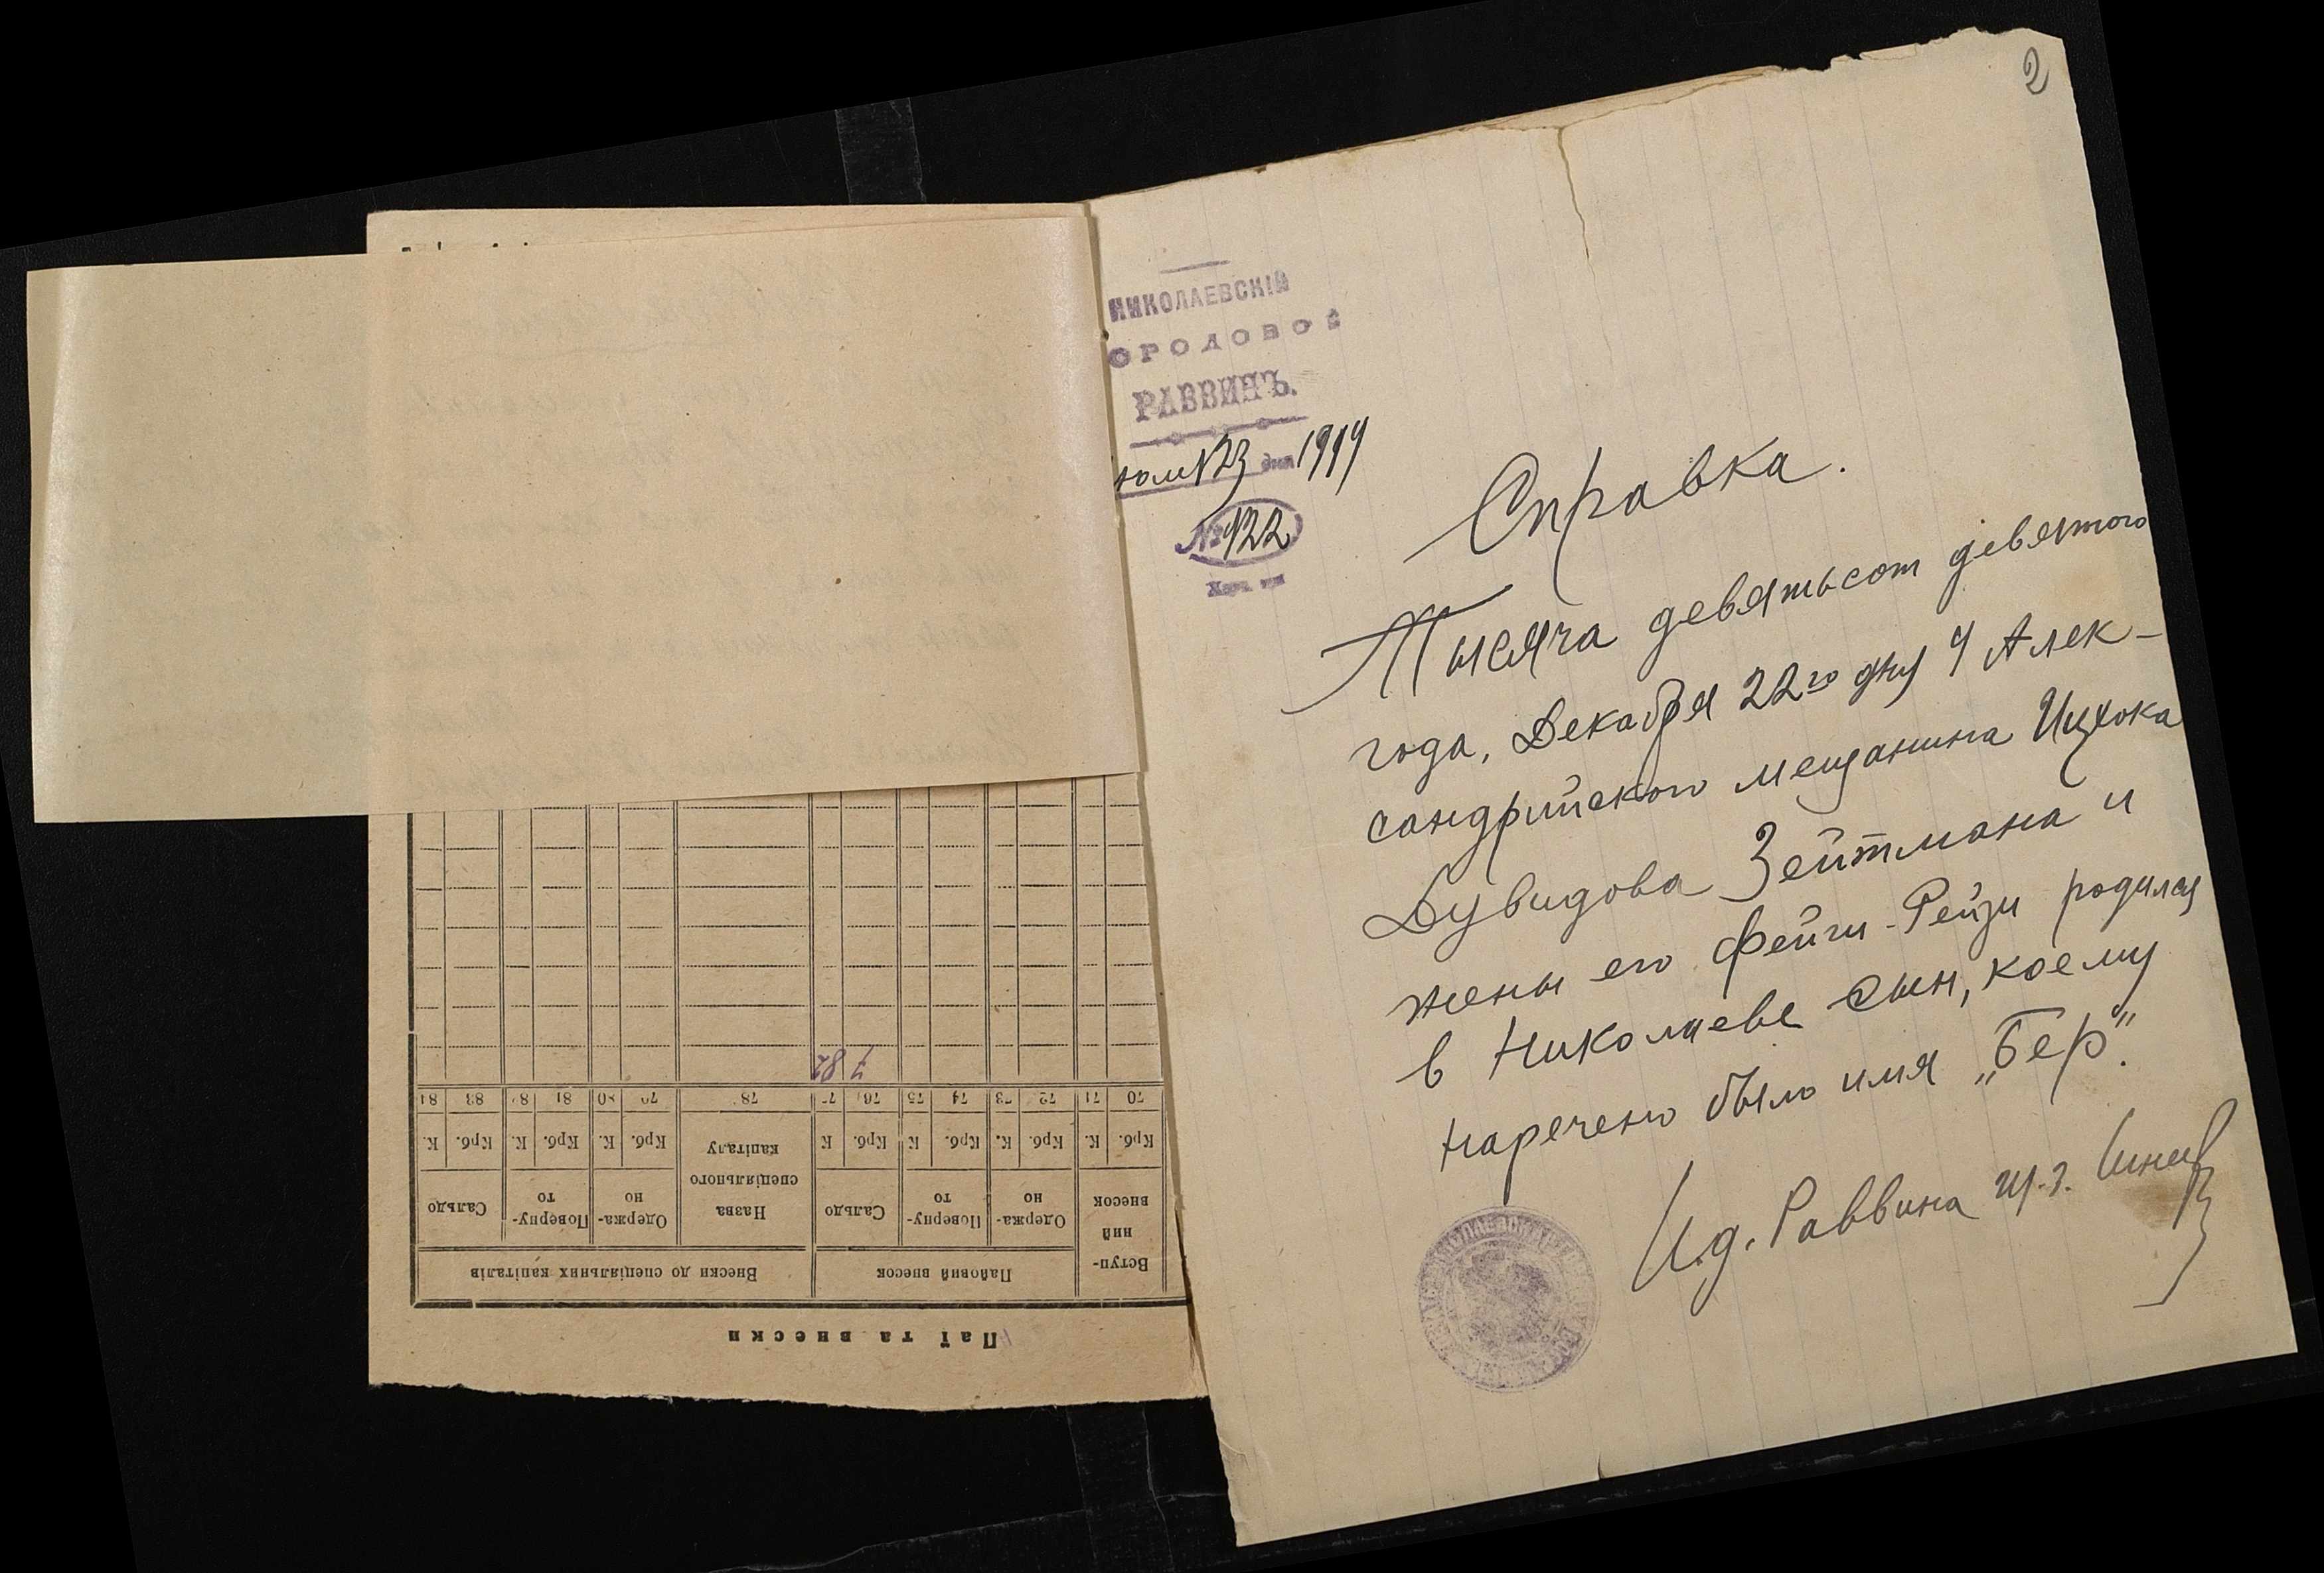 2
НИКОЛАЕВСКІЙ
ОРОДОВОЙ
РАВВИНЪ.
юля 23 дня 1919
№ 122
Справка.
Тысяча девятьсот девятого
года, Декабря 22го дня у Алек-
сандрийского мещанина Ицхока
Дувидова Зейтмана и
жены его Фейги-Рейзи родился
в Николаеве сын, коему
наречено было имя „Бер".
И.д. Раввина
Паї та внески
Вступ-
ний
внесок
Пайовий внесок
Внески до спеціяльних капіталів
Одержа-
но
Поверну-
то
Сальдо
Назва
спеціяльного
капіталу
Одержа-
но
Поверну-
то
Сальдо
Крб. К. Крб. К. Крб. К Крб. К Крб. К. Крб. К. Крб. К.
70 71 72 73 74 75 76 77 78 79 80 81 82 83 84